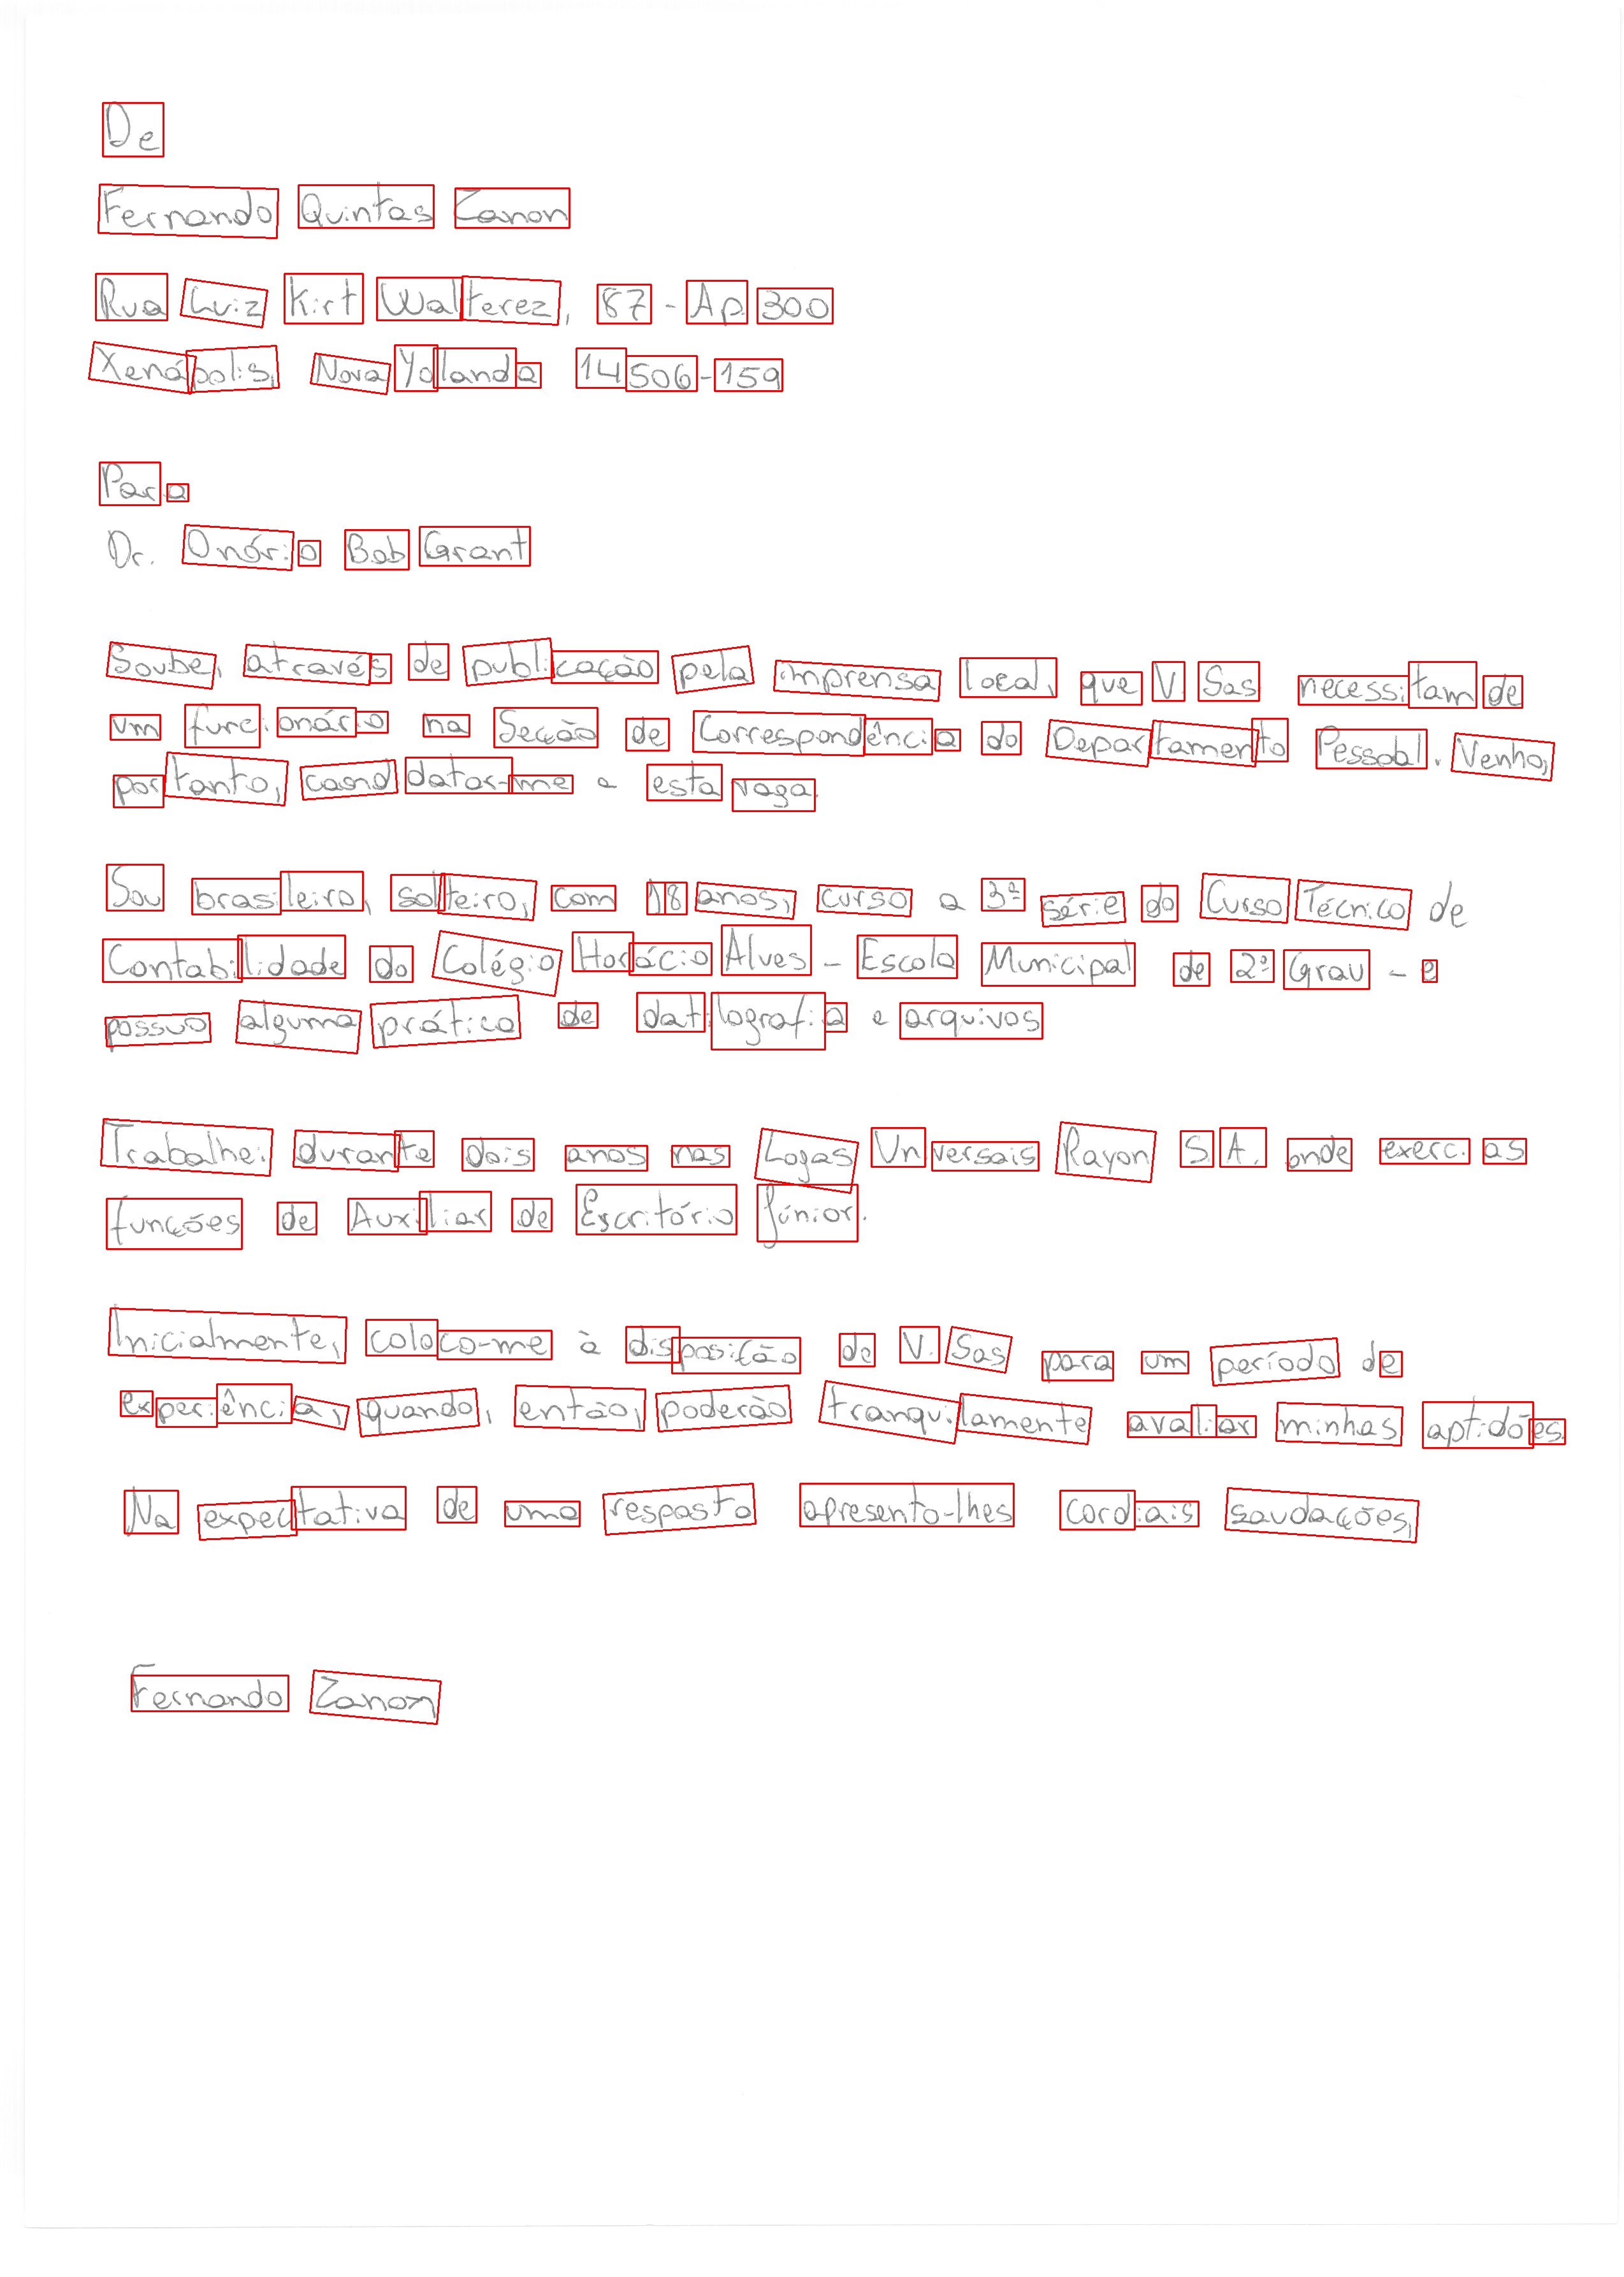 De
Fernando Quintas Zanon
Rua Luiz Kirt Walterez, 87 - Ap 300
Xenápolis, Nova Yolanda 14506-159
Para
Dr. Onório Bob Grant
Soube, através de publicação pela imprensa local, que V. Sas necessitam de
um funcionário na Seção de Correspondência do Departamento Pessoal. Venho,
portanto, casndidatar-me a esta vaga.
Sou brasileiro, solteiro, com 18 anos, curso a 3ª série do Curso Técnico de
Contabilidade do Colégio Horácio Alves - Escola Municipal de 2º Grau - e
possuo alguma prática de datilografia e arquivos
Trabalhei durante dois anos nas Lojas Universais Rayon S. A. onde exerci as
funções de Auxiliar de Escritório Júnior.
Inicialmente, coloco-me à disposição de V. Sas para um período de
experiência, quando, então, poderão tranquilamente avaliar minhas aptidões.
Na expectativa de uma resposta apresento-lhes cordiais saudações,
Fernando Zanon